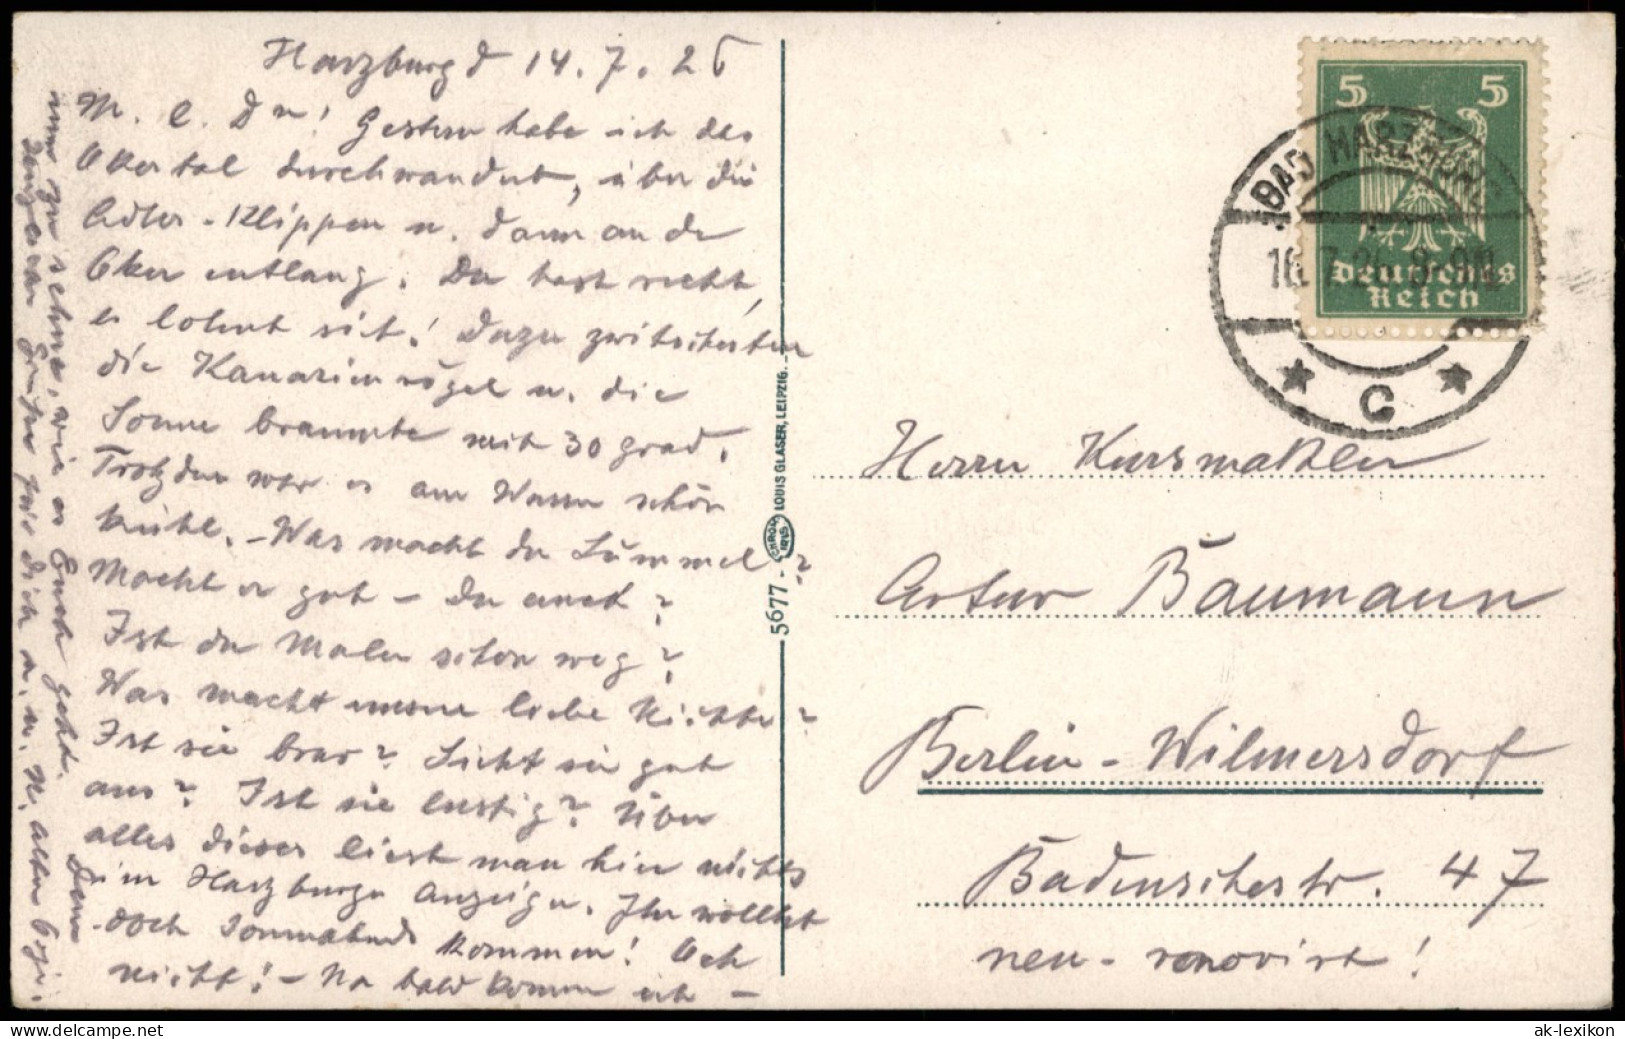 Harzburg d 14. 7. 26
M. l. Du! Gestern habe ich das
Okertal durchwandert, über die
Adler-Klippen u. dann an der
Oker entlang. Du hast recht,
es lohnt sich! Dazu zwitscherten
die Kanarienvögel u. die
Sonne brannte mit 30 Grad.
Trotzdem war es am Wasser schön
kühl. – Was macht der Lümmel?
Macht er gut – Du auch?
Ist der Maler schon weg?
Was macht unsere liebe Nichte?
Ist sie brav? Sieht sie gut
aus? Ist sie lustig? Über
alles dieses liest man hier nichts
im Harzburger Anzeiger. Ihr wolltet
doch Sonnabend kommen! Och
nicht! – Na bald komm ich –
um zu sehen, wie es Euch geht.
Dein
für Dich u. u. N.
5677 - CHROM IRIS LOUIS GLASER, LEIPZIG.
5 5
Deutsches
Reich
BAD HARZBURG
16.7.26. 8-9 N
* C *
Herrn Kursmakler
Artur Baumann
Berlin-Wilmersdorf
Badenschestr. 47
neu-renovirt!
ak-lexikon.com